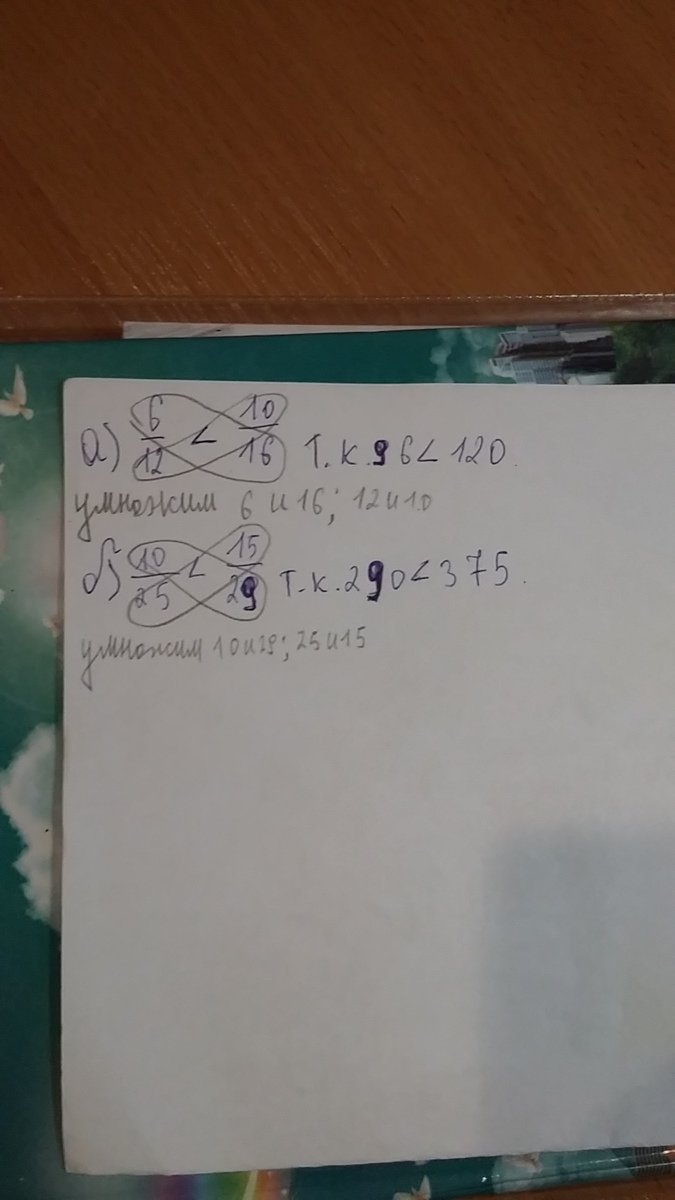 а) 6/12 < 10/16 т.к. 96 < 120.
умножим 6 и 16; 12 и 10
б) 10/25 < 15/29 т.к. 290 < 375.
умножим 10 и 29; 25 и 15